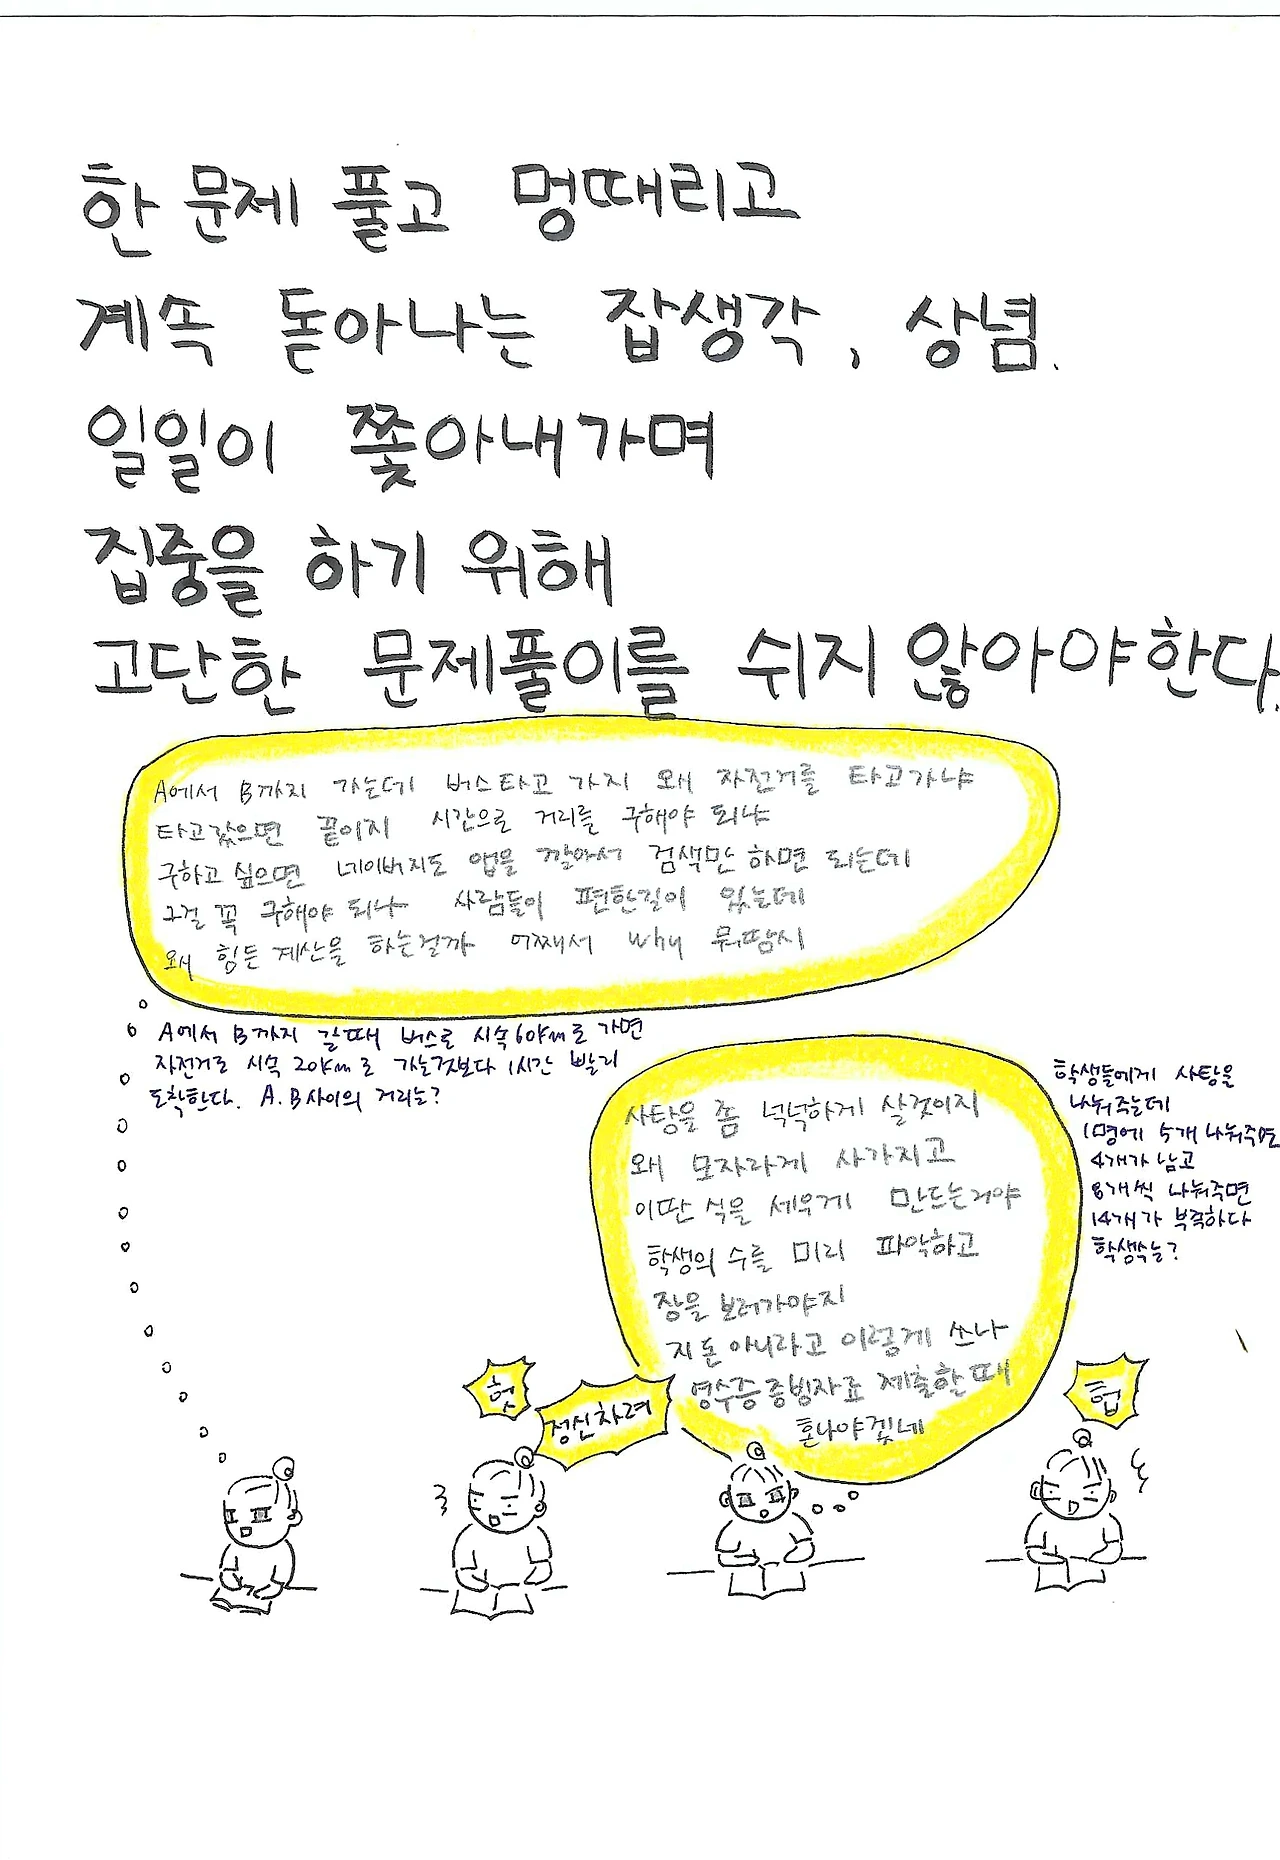 한 문제 풀고 멍때리고
계속 돋아나는 잡생각, 상념.
일일이 쫓아내가며
집중을 하기 위해
고단한 문제풀이를 쉬지 않아야한다.
A에서 B까지 가는데 버스타고 가지 왜 자전거를 타고가냐
타고갔으면 끝이지 시간으로 거리를 구해야 되냐
구하고 싶으면 네이버지도 앱을 깔아서 검색만 하면 되는데
그걸 꼭 구해야 되나 사람들이 편한길이 있는데
왜 힘든 계산을 하는걸까 어째서 why 뭐땀시
A에서 B까지 갈때 버스로 시속60km로 가면
자전거로 시속 20km로 가는것보다 1시간 빨리
도착한다. A.B사이의 거리는?
사탕을 좀 넉넉하게 살것이지
왜 모자라게 사가지고
이딴 식을 세우게 만드는거야
학생의 수를 미리 파악하고
장을 보러가야지
지돈 아니라고 이렇게 쓰나
영수증증빙자료 제출할때
혼나야겠네
학생들에게 사탕을
나눠주는데
1명에 5개 나눠주면
4개가 남고
8개씩 나눠주면
14개가 부족하다
학생수는?
헛
정신차려
헙